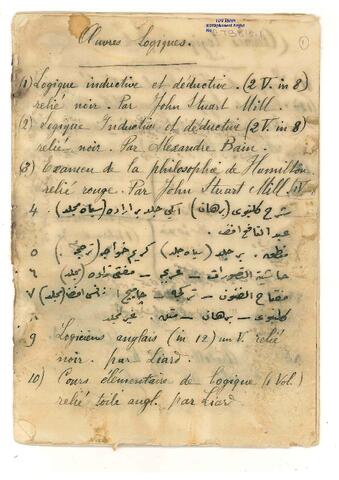 Œuvres Logiques.
(1) Logique inductive et déductive. (2 V. in 8)
relié noir. Par John Stuart Mill.
(2) Logique Inductive et déductive (2 V. in 8)
relié noir. Par Alexandre Bain.
(3) Examen de la philosophie de Hamilton
relié rouge. Par John Stuart Mill. 1 V
٤ شرح كلنبوى (برهان) ايكى جلد بر اراده (سياه مجلد)
عبد النافع افندى
٥ منطق. بر جلد (سياه جلد)
٦ حاشية التصورات — عربى — مفتى زاده (مجلد)
٧ مفتاح الفنون — تركچه — (مجلد)
٨ كلنبوى — برهان — متن. غير مجلد
9 Logiciens anglais (in 12) un V. relié
noir. par Liard.
10) Cours élémentaire de Logique (1 Vol.)
relié toile angl. par Liard